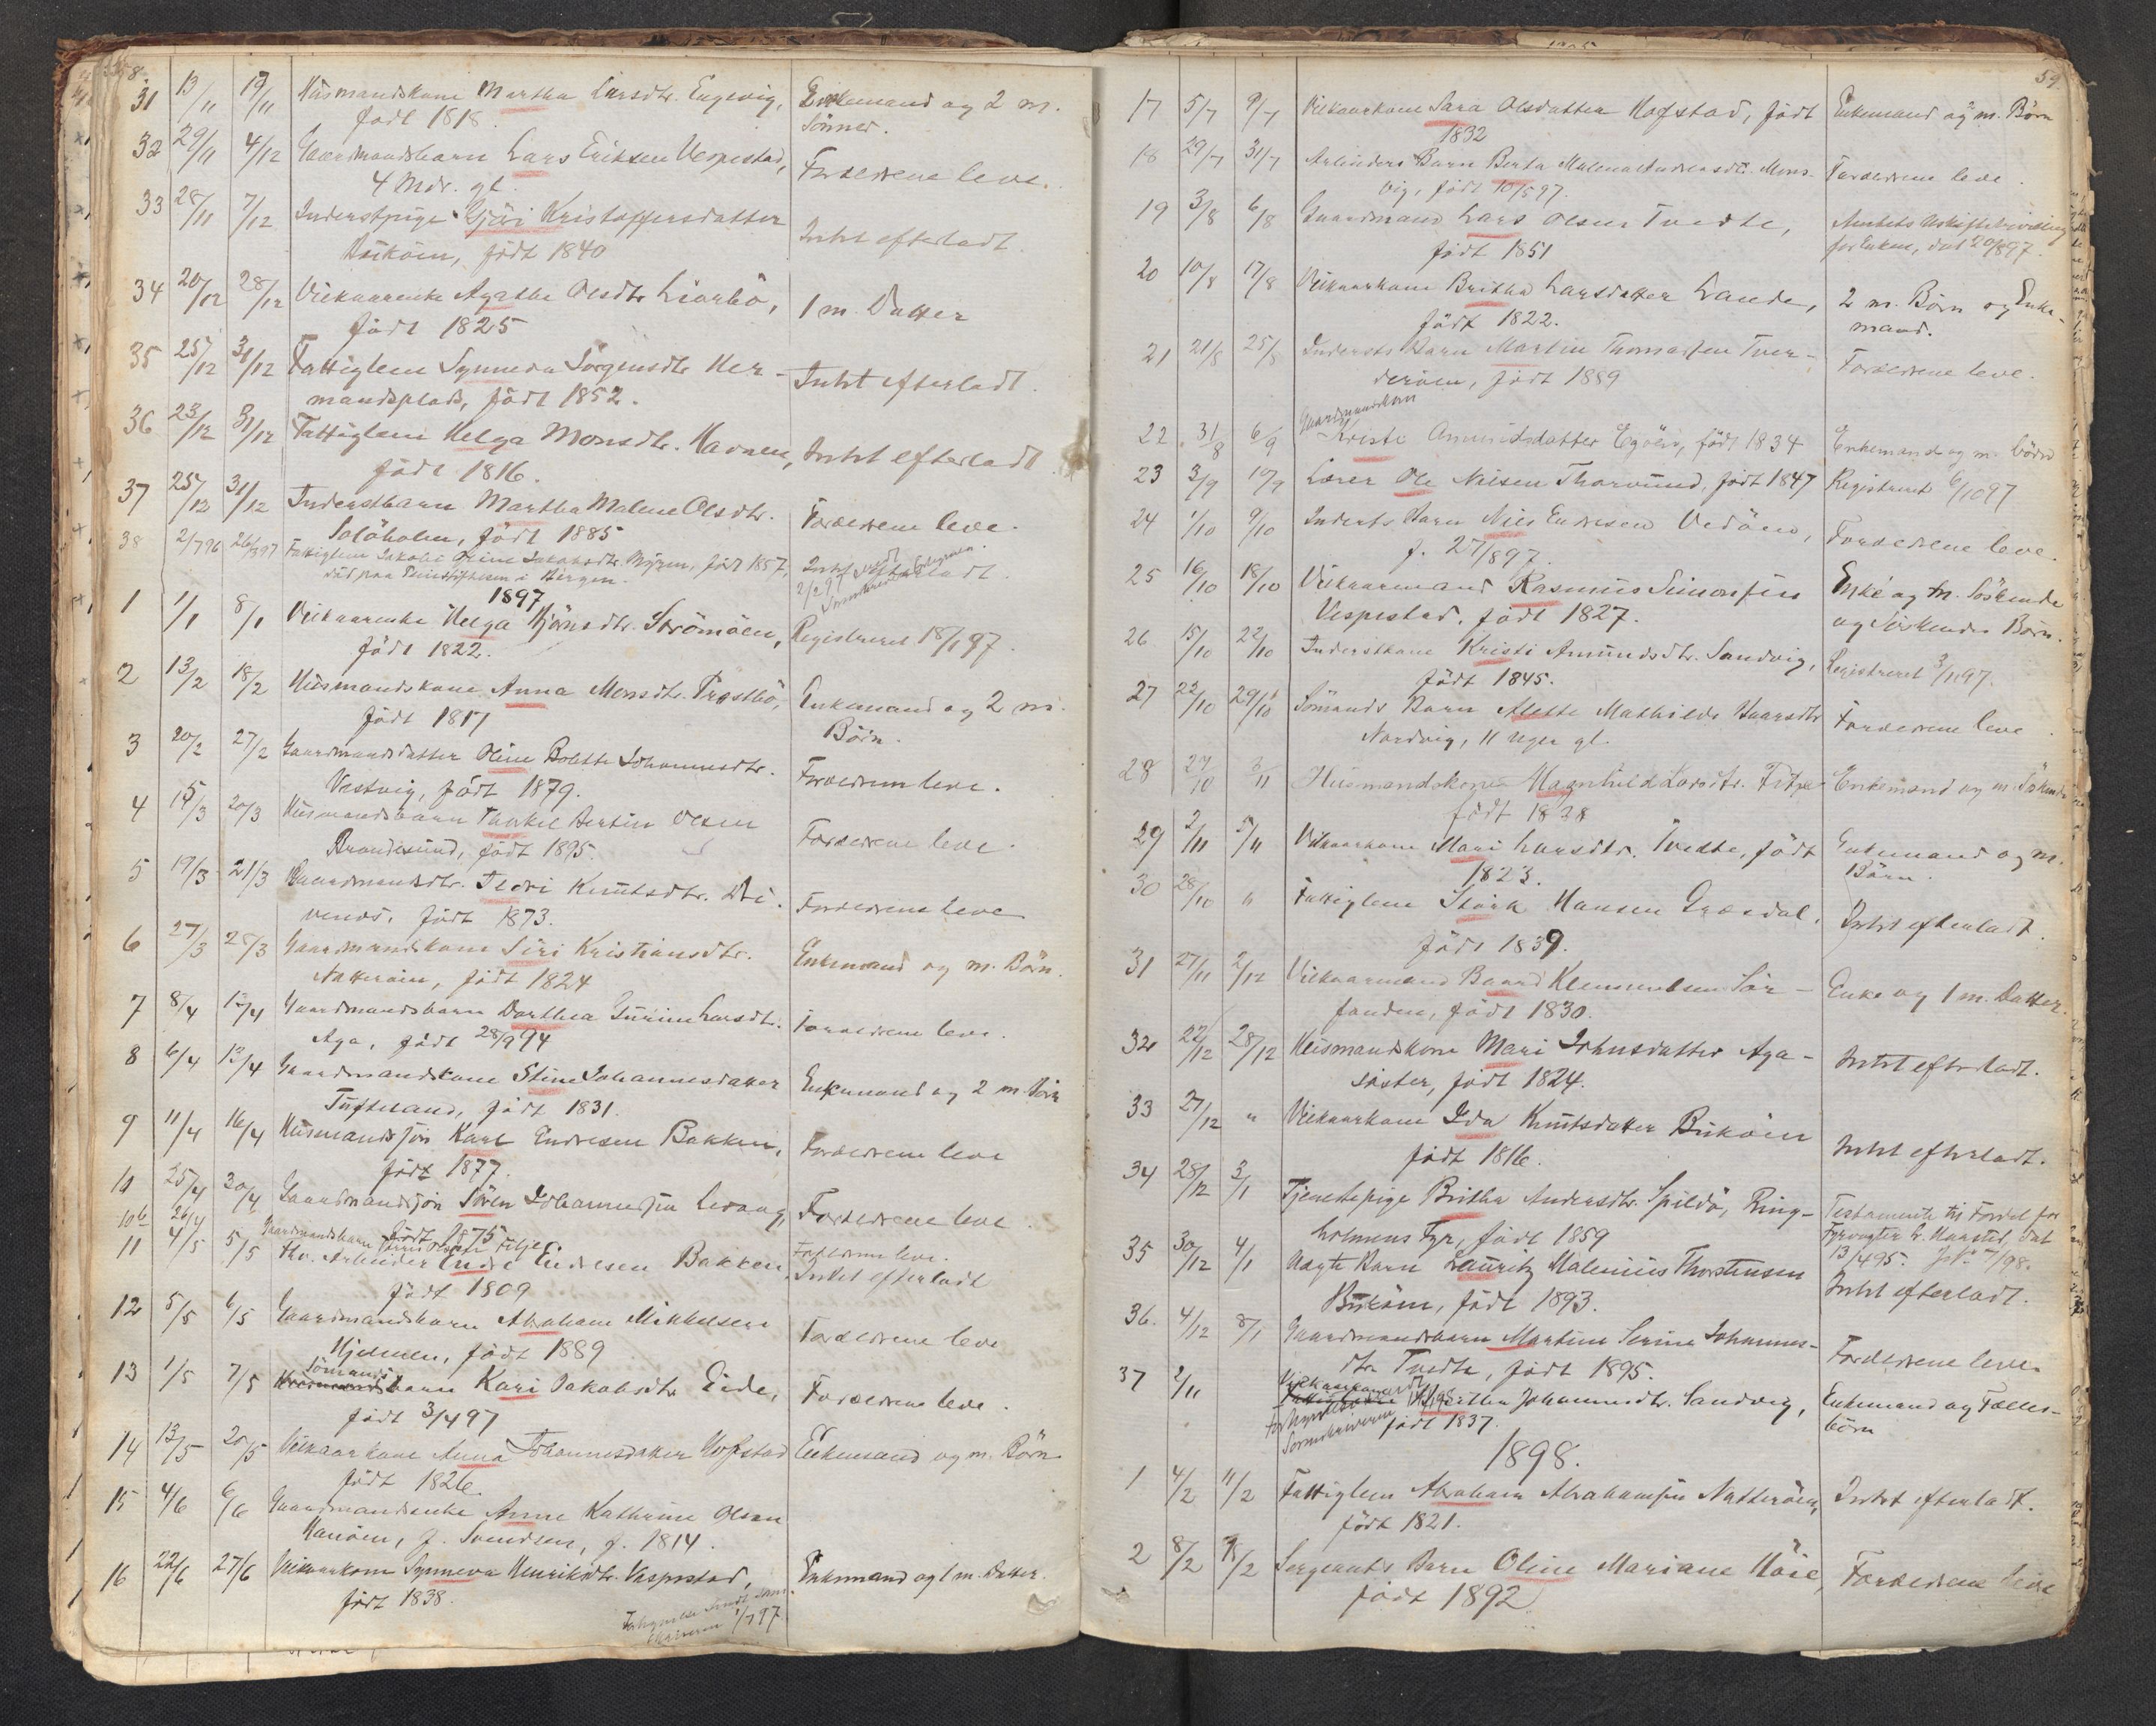 58
31 13/11 19/11 Husmandskone Martha Larsdtr. Engevig, Enkemand og 2 m.
født 1818. Sønner.
32 29/11 4/12 Gaardmandsbarn Lars Eriksen Vespestad, Forældrene leve.
4 Mdr. gl.
33 28/11 7/12 Inderstpige Gjøri Kristoffersdatter Intet efterladt
Buköen, født 1840
34 20/12 28/12 Vilkaarenke Agathe Olsdtr Liarbö, 1 m. Datter
født 1825
35 25/12 31/12 Fattiglem Synneva Jørgensdtr Her- Intet efterladt.
mandsplads, født 1852.
36 23/12 31/12 Fattiglem Helga Monsdtr. Havnen, Intet efterladt
født 1816.
37 25/12 31/12 Inderstbarn Martha Malene Olsdtr. Forældrene leve.
Solöholm, født 1885
38 2/7 96 26/3 97 Fattiglem Jakobi Oline Jakobsdtr. Myren, født 1857, Intet efterladt.
død paa Pleiestiftelsen i Bergen. 2/2 97 sendt Sorenskriveren
1897
1 1/1 8/1 Vilkaarenke Helga Björnsdtr. Strömöen, Registreret 18/1 97.
født 1822.
2 13/2 18/2 Husmandskone Anna Monsdtr. Trostbö, Enkemand og 2 m.
født 1817 Börn.
3 20/2 27/2 Gaardmandsdatter Oline Bolette Johannesdtr. Forældrene leve.
Vestvig, født 1879.
4 15/3 20/3 Husmandsbarn Thorkel Bertin Olsen Forældrene leve.
Brandesund, født 1895.
5 19/3 21/3 Gaardmandsdtr. Tjeri Knutsdtr. Dri- Forældrene leve
venes, født 1873.
6 27/3 28/3 Gaardmandskone Siri Kristiansdtr. Enkemand og m. Börn.
Natteröen, født 1824
7 8/4 12/4 Gaardmandsbarn Dorthea Gurine Larsdtr. Forældrene leve.
Aga, født 28/9 94
8 6/4 13/4 Gaardmandskone Stine Johannesdatter Enkemand og 2 m. Börn
Tufteland, født 1831.
9 11/4 16/4 Husmandssøn Karl Endresen Bakken, Forældrene leve
født 1877.
10 25/4 30/4 Gaardmandssøn Sören Johannessen Levaag, Forældrene leve.
født 1875
10b 26/4 Gaardmandsbarn Filje Forældrene leve.
11 4/5 5/5 fhv. Arbeider Endre Endresen Bakken, Intet efterladt
født 1809
12 5/5 6/5 Gaardmandsbarn Abraham Mikkelsen Forældrene leve
Hjelmen, født 1889
13 1/5 7/5 Sömandsbarn Kari Jakobsdtr Eide, Forældrene leve.
født 3/4 97
14 13/5 20/5 Vilkaarkone Anna Johannesdatter Hofstad Enkemand og m. Börn
født 1826.
15 4/6 6/6 Gaardmandsenke Anne Kathrine Olsen
Hanöen, f. Svendsen, f. 1814.
16 22/6 27/6 Vilkaarkone Synneva Henriksdtr. Vespestad, Enkemand og 1 m. Datter.
født 1838.
Forkyndelse sendt Sorenskriveren 1/7 97
59.
17 5/7 9/7 Vilkaarkone Sara Olsdatter Hofstad, født Enkemand og m. Börn
1832
18 29/7 31/7 Arbeiders Barn Berta Malena Andreasdtr. Mons- Forældrene leve.
vig, født 10/5 97.
19 3/8 6/8 Gaardmand Lars Olsen Tvedte, Amtets Uskiftebevilling
født 1851 for Enken, dat 20/8 97.
20 10/8 17/8 Vilkaarkone Britha Larsdatter Lande, 2 m. Börn og Enke-
født 1822. mand.
21 21/8 25/8 Indersts Barn Martin Thomassen Tver- Forældrene leve.
deröen, født 1889
Gaardmandskone
22 31/8 6/9 Kristi Amundsdatter Egöen, født 1834 Enkemand og m. börn
23 3/9 10/9 Lærer Ole Nilsen Thorsund, født 1847 Registreret 6/10 97
24 1/10 9/10 Indersts Barn Nils Endresen Vedöen, Forældrene leve.
f. 27/8 97.
25 16/10 18/10 Vilkaarmand Rasmus Simonsen Enke og m. Söskende
Vespestad, født 1827. og Söskendes Börn.
26 15/10 22/10 Inderstkone Kristi Amundsdtr. Sandvig, Registreret 3/11 97.
født 1845.
27 22/10 29/10 Sömands Barn Alette Mathilde Haarsdtr Forældrene leve.
Nordvig, 11 Uger gl.
28 27/10 3/11 Husmandskone Magnhild Larsdtr. Fitje Enkemand og m. Söskende
født 1828
29 2/11 5/11 Vilkaarkone Mari Larsdtr. Tvedte, født Enkemand og m.
1823. Börn.
30 28/10 " Fattiglem Störk Hansen Græsdal, Intet efterladt.
født 1839.
31 27/11 2/12 Vilkaarmand Baard Klemmetsen Sör- Enke og 1 m. Datter.
fonden, født 1830.
32 22/12 28/12 Husmandskone Mari Johnsdatter Aga- Intet efterladt.
söster, født 1824.
33 27/12 " Vilkaarkone Ida Knutsdatter Buköen Intet efterladt.
født 1816.
34 28/12 3/1 Tjenestepige Britha Andersdtr. Spildö, Ring- Testamente til Fordel for
holmens Fyr, født 1859 Fyrvogter L. Maastad, dat
13/4 95.
35 30/12 4/1 Uægte Barn Lauritz Malenius Thorstensen Intet efterladt.
Buköen, født 1893.
36. 4/12 8/1 Gaardmandsbarn Martine Serine Johannes- Forældrene leve
dtr Tvedte, født 1895.
37 2/11 Vilkaarkone Martha Johannesdtr. Sandvig, Enkemand og Fælles-
Sorenskriveren født 1837. börn
1898.
1 4/2 11/2 Fattiglem Abraham Abrahamsen Natteröen, Intet efterladt.
født 1821.
2 8/2 /2 Sergeants Barn Oline Mariane Höie, Forældrene leve
født 1892